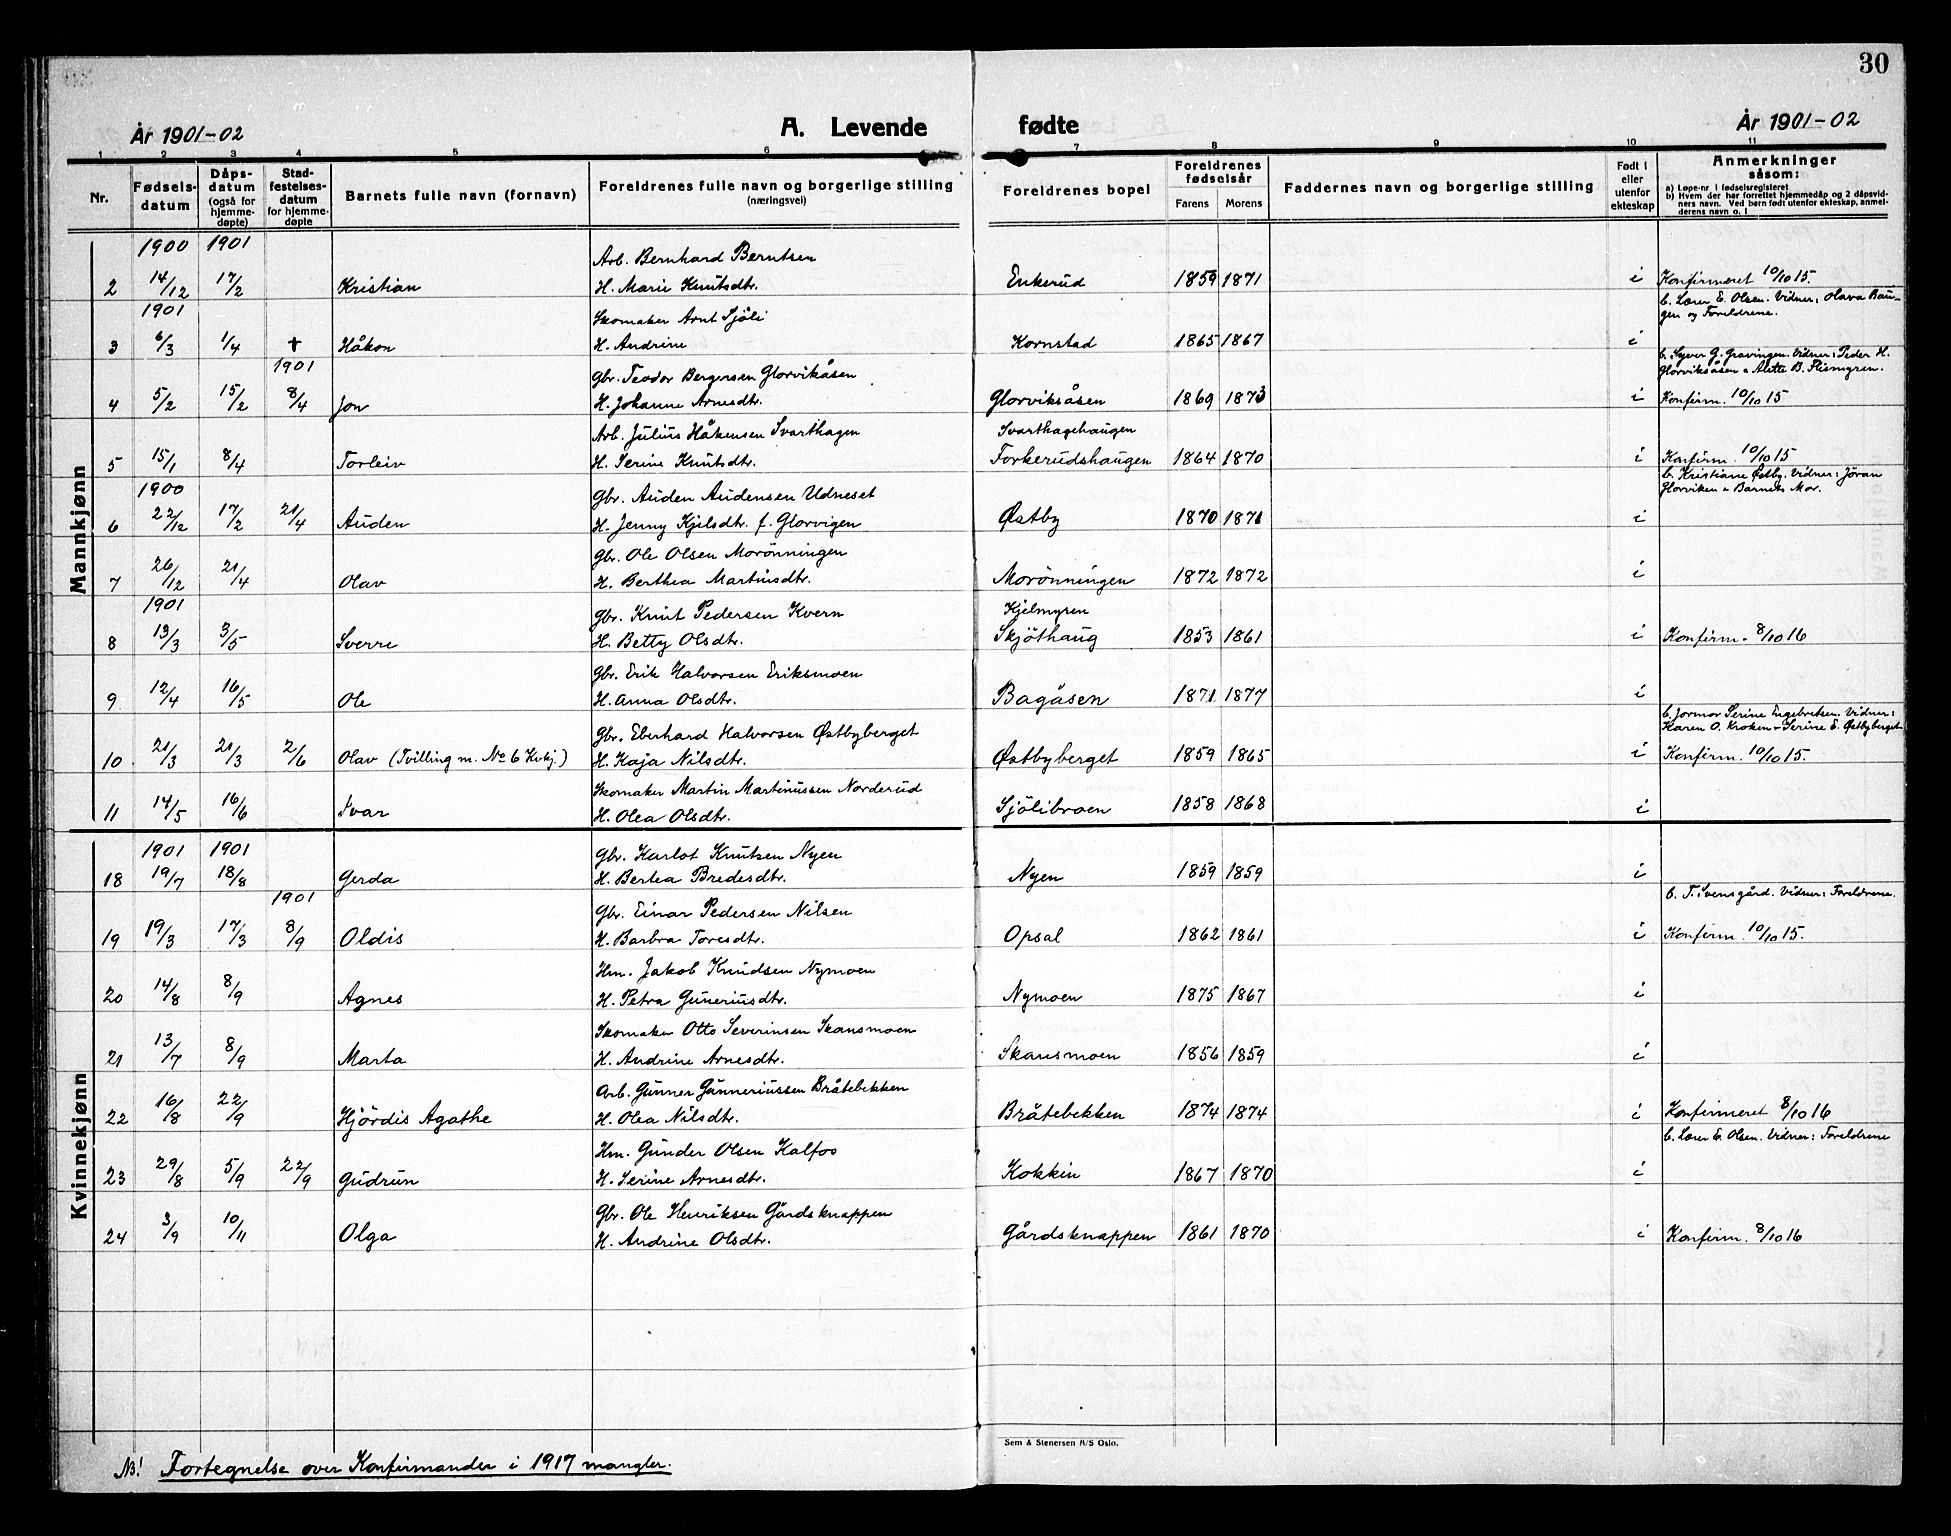 30
År 1901-02
A. Levende fødte
År 1901-02
1 2 3 4 5 6 7 8 9 10 11
Nr.
Fødsels-
datum
Dåps-
datum
(også for
hjemme-
døpte)
Stad-
festelses-
datum
for hjemme-
døpte
Barnets fulle navn (fornavn)
Foreldrenes fulle navn og borgerlige stilling
(næringsvei)
Foreldrenes bopel
Foreldrenes
fødselsår
Farens Morens
Faddernes navn og borgerlige stilling
Født i
eller
utenfor
ekteskap
Anmerkninger
såsom:
a) Løpe-nr i fødselsregisteret
b) Hvem der har forrettet hjemmedåp og 2 dåpsvid-
ners navn. Ved barn født utenfor ekteskap, anmel-
derens navn o. l
Mannkjønn
1900 1901 Arb. Bernhard Berntsen
2 14/12 17/2 Kristian H. Marie Knutsdtr. Enkerud 1859 1871 i Konfirmeret 10/10 15.
1901 Skomaker Arnt Sjöli b. Lærer E. Olsen. Vidner: Olava Bau-
gen og Foreldrene.
3 6/3 1/4 † Håkon H. Andrine Kornstad 1865 1867 i
1901 Gbr. Teodor Bergersen Glorvikåsen b. Syver G. Gravingen. Vidner: Peder H.
Glorviksåsen & Alette B. Flismyren.
4 5/2 15/2 8/4 Jon H. Johanne Arnesdtr. Glorviksåsen 1869 1873 i Konfirm. 10/10 15
Arb. Julius Håkensen Svarthagen Svarthagehaugen
5 15/1 8/4 Torleiv H. Serine Knutsdtr. Forkerudshaugen 1864 1870 i Konfirm. 10/10 15
1900 Gbr. Auden Audensen Udneset b. Kristiane Østby. Vidner: Jöran
Glorviken & Barnets Mor.
6 22/12 17/2 21/4 Auden H. Jenny Kjelsdtr. f. Glorvigen Østby 1870 1871 i
Gbr. Ole Olsen Morönningen
7 26/12 21/4 Olav H. Berthea Martinsdtr. Morönningen 1872 1872 i
1901 Gbr. Knut Pedersen Kvern Kjelmyren
8 13/3 3/5 Sverre H. Betty Olsdtr. Skjöthaug 1853 1861 i Konfirm. 8/10 16
Gbr. Erik Halvorsen Eriksmoen
9 12/4 16/5 Ole H. Anna Olsdtr. Bagåsen 1871 1877 i
Gbr. Eberhard Halvorsen Østbyberget b. Jormor Serine Engebretsen. Vidner:
Karen O. Kroken & Serine E. Østbyberget
10 21/3 21/3 2/6 Olav (Tvilling m. No 6 Kvkj.) H. Kaja Nilsdtr. Østbyberget 1859 1865 i Konfirm. 10/10 15.
Skomaker Martin Martinussen Norderud
11 14/5 16/6 Ivar H. Olea Olsdtr. Sjölibroen 1858 1868 i
Kvinnekjønn
1901 1901 Gbr. Karlot Knutsen Nyen
18 19/7 18/8 Gerda H. Bertea Bredesdtr. Nyen 1859 1859 i
1901 Gbr. Einar Pedersen Nilsen b. T. Svensgård. Vidner: Foreldrene.
19 19/3 17/3 8/9 Oldis H. Barbra Toresdtr. Opsal 1862 1861 i Konfirm. 10/10 15.
Hm. Jakob Knudsen Nymoen
20 14/8 8/9 Agnes H. Petra Guneriusdtr. Nymoen 1875 1867 i
Skomaker Otto Severinsen Skansmoen
21 13/7 8/9 Marta H. Andrine Arnesdtr. Skansmoen 1856 1859 i
Arb. Gunner Gunneriussen Bråtebekken
22 16/8 22/9 Hjördis Agathe H. Olea Nilsdtr. Bråtebekken 1874 1874 i Konfirmeret 8/10 16
Hm. Gunder Olsen Kalfos b. Lærer E. Olsen. Vidner: Foreldrene
23 29/8 5/9 22/9 Gudrun H. Serine Arnesdtr. Kokkin 1867 1870 i
Gbr. Ole Henriksen Gårdsknappen
24 3/9 10/11 Olga H. Andrine Olsdtr. Gårdsknappen 1861 1870 i Konfirm. 8/10 16
Sem & Stenersen A/S Oslo.
NB! Fortegnelse over Konfirmander i 1917 mangler.